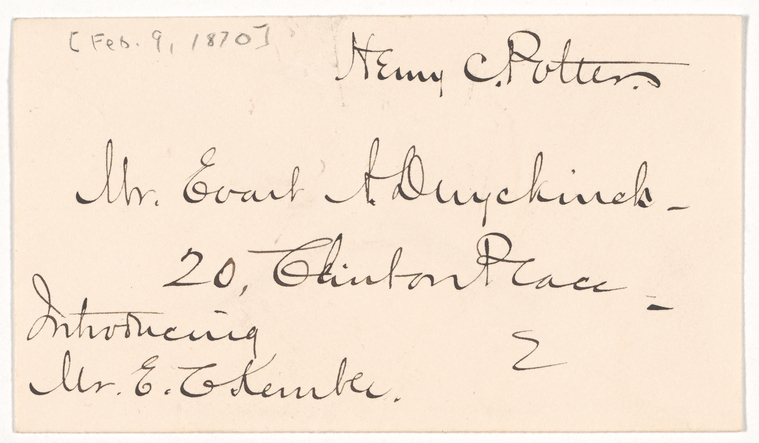 [Feb. 9, 1870]
Henry C. Potter.
Mr. Evart A. Duyckinck -
20, Clinton Place -
Introducing
Mr. E. C. Kemble.